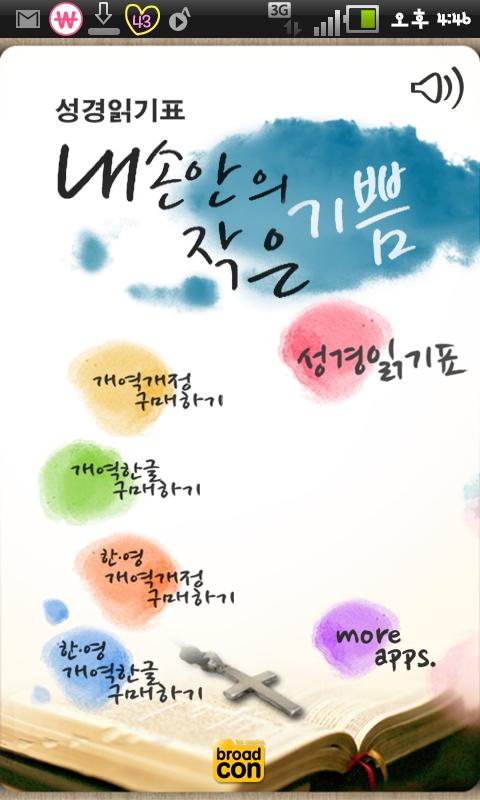 ₩ 43 3G 오후 4:46
성경읽기표
내손안의
작은 기쁨
성경읽기표
개역개정
구매하기
개역한글
구매하기
한·영
개역개정
구매하기
한·영
개역한글
구매하기
more
apps.
broad
con